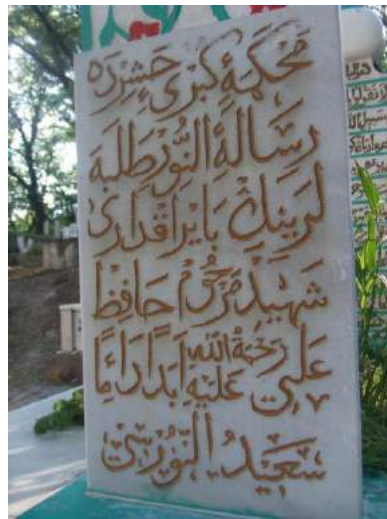 محكمۀ كبرى حشرده
رسالة النور طلبه
لرينڭ بايراقدارى
شهيد مرحوم حافظ
على رحمة الله عليه ابدا دائما
سعيد النورسى